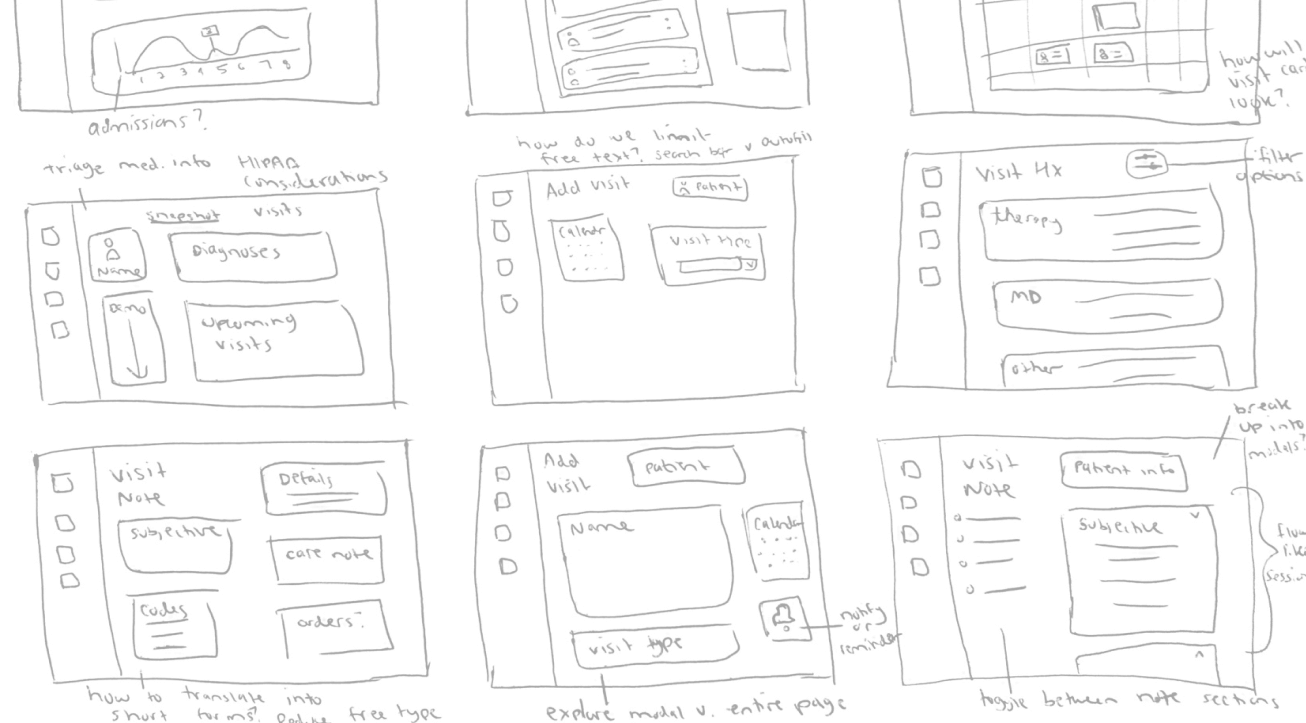 1 2 3 4 5 6 7 8
admissions?
how will
visit
look?
triage med. info
HIPAA
considerations
snapshot visits
Name
Diagnoses
Demo
upcoming
visits
how do we limit
free text? search bar v autofill
Add visit
patient
Calendr
visit type
Visit Hx
filter
options
therapy
MD
other
visit
Note
Details
subjective
care note
codes
orders?
how to translate into
short forms? free type
Add
visit
patient
Name
Calendar
visit type
notify
or
reminder
explore modal v. entire page
break
up into
modals?
visit
Note
Patient info
subjective
session
toggle between note sections